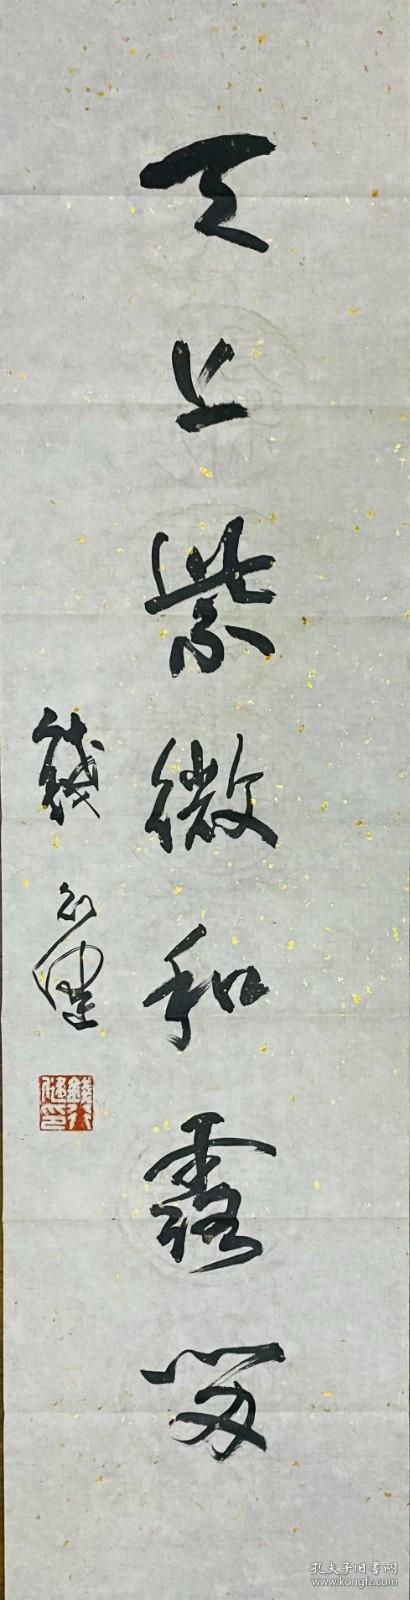 天上紫微和露
錢行健
錢行健印
孔夫子旧书网
www.kongfz.com